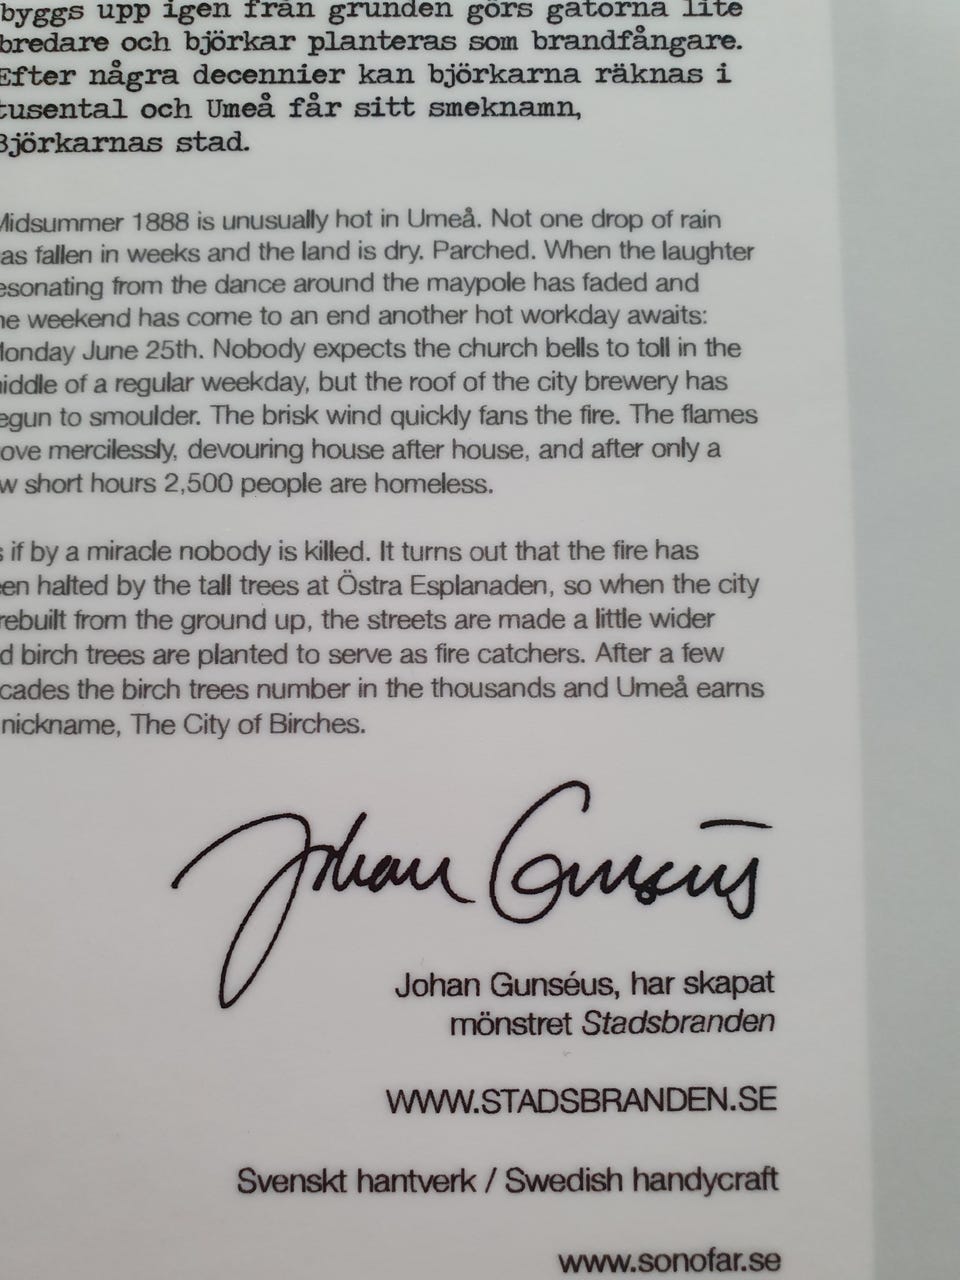 byggs upp igen från grunden görs gatorna lite
bredare och björkar planteras som brandfångare.
Efter några decennier kan björkarna räknas i
tusental och Umeå får sitt smeknamn,
Björkarnas stad.
Midsummer 1888 is unusually hot in Umeå. Not one drop of rain
as fallen in weeks and the land is dry. Parched. When the laughter
esonating from the dance around the maypole has faded and
he weekend has come to an end another hot workday awaits:
Monday June 25th. Nobody expects the church bells to toll in the
iddle of a regular weekday, but the roof of the city brewery has
egun to smoulder. The brisk wind quickly fans the fire. The flames
ove mercilessly, devouring house after house, and after only a
w short hours 2,500 people are homeless.
s if by a miracle nobody is killed. It turns out that the fire has
een halted by the tall trees at Östra Esplanaden, so when the city
rebuilt from the ground up, the streets are made a little wider
d birch trees are planted to serve as fire catchers. After a few
cades the birch trees number in the thousands and Umeå earns
nickname, The City of Birches.
Johan Gunséus
Johan Gunséus, har skapat
mönstret Stadsbranden
WWW.STADSBRANDEN.SE
Svenskt hantverk / Swedish handycraft
www.sonofar.se